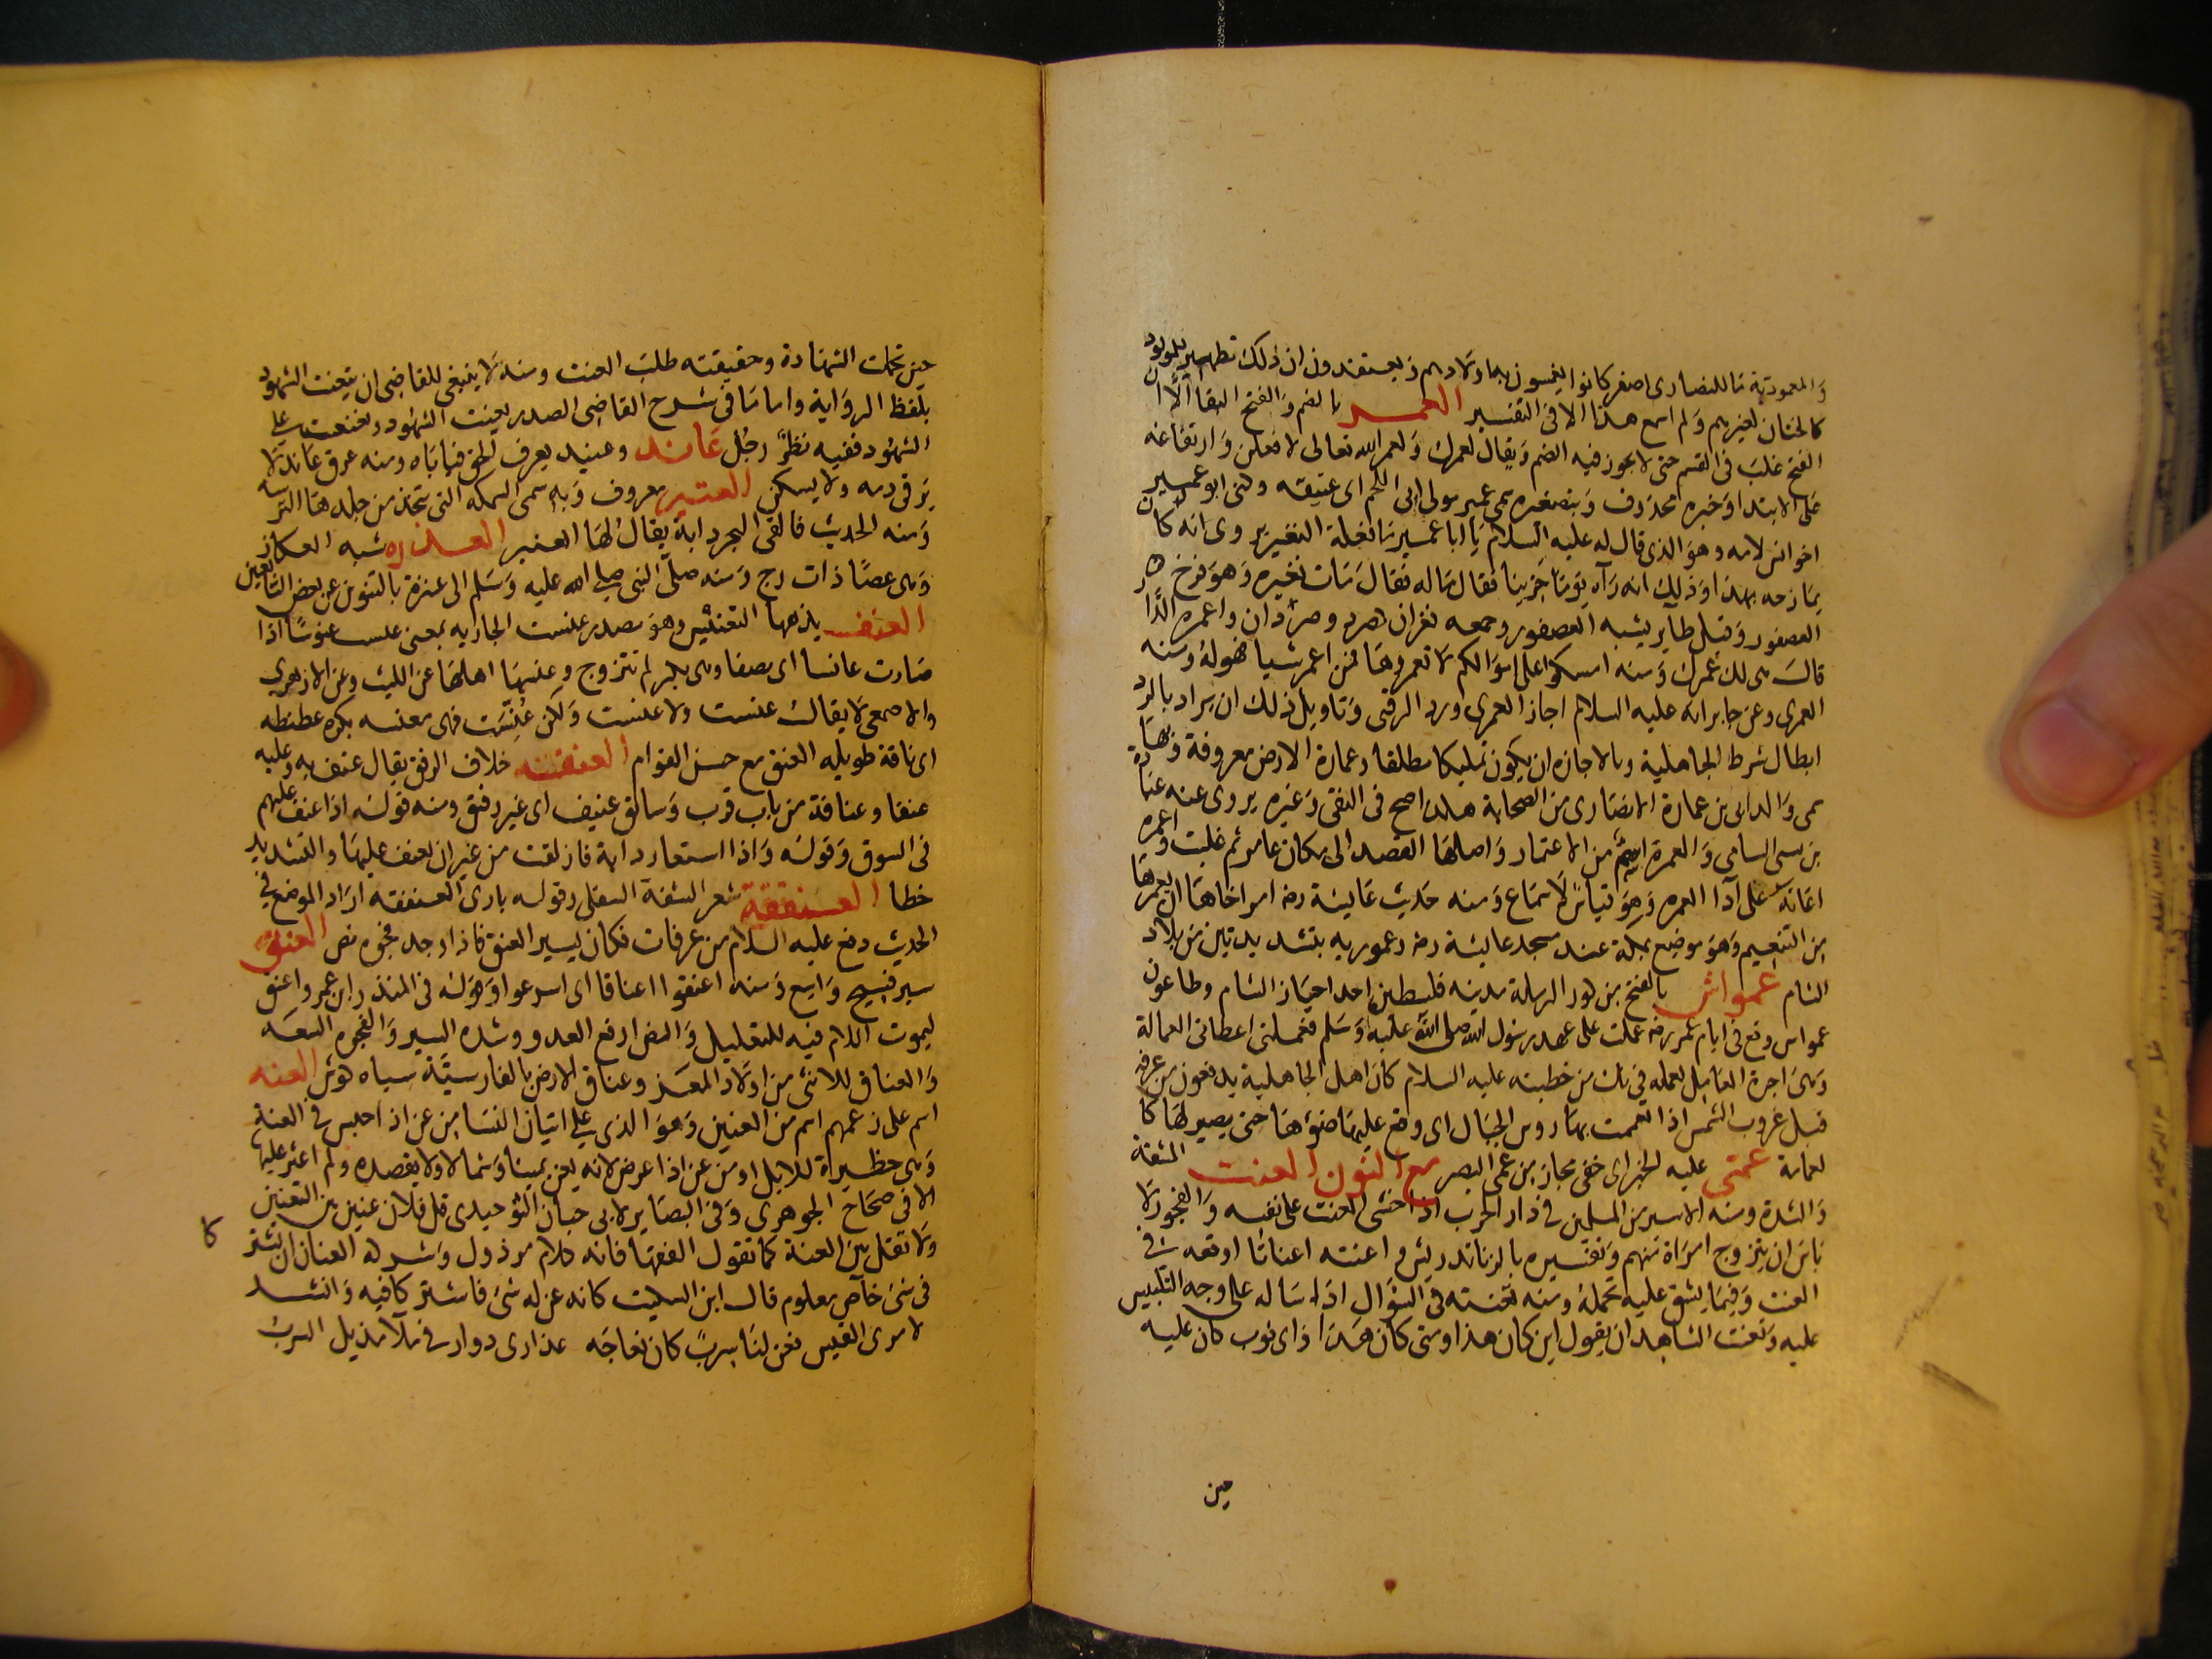 والمعمودية ما للنصارى اصفر كانوا يغمسون بها اولادهم ويعتقدون ان ذلك تطهير للمولود
كالختان لغيرهم ولم اسمع هذا الا فى التفسير العمر بالضم والفتح البقا الا ان
الفتح غلب فى القسم حتى لا يجوز فيه الضم ويقال لعمرك ولعمر الله تعالى لافعلن وارتفاعه
على الابتدا وخبره محذوف وبتصغيره سمى عمير مولى ابى اللحم اى عتيقه وكنى ابو عمير
اخو انس لامه وهو الذى قال له عليه السلام يا ابا عمير ما فعلة النغير يروى انه كان
يمازحه بهذا وذلك انه رآه يوما حزينا فقال ما له فقال مات نغيره وهو فرخ
العصفور وقيل طاير يشبه العصفور وجمعه نغران صرد وصردان واعمره الدار
قال هى لك عمرك ومنه امسكوا على اموالكم لا تعمروها فمن اعمر شيا فهو له ومنه
العمرى وعن جابر انه عليه السلام اجاز العمرى ورد الرقبى وتاويل ذلك ان يراد بالرد
ابطال شرط الجاهلية وبالاجازة ان يكون تمليكا مطلقا وعمارة الارض معروفة وبها
سمى والد ابى بن عمارة الانصارى من الصحابة هكذا صح فى النفى وغيره يروى عنه عبادة
بن نسى الشامى والعمرة اسم من الاعتمار واصلها القصد الى مكان عامر ثم غلبت واعمره
اعانه على ادا العمرة وهو قياس لا سماع ومنه حديث عايشة رضه امر اخاها ان يعمرها
من التنعيم وهو موضع بمكة عند مسجد عايشة رضه وعمورية بتشديدتين من بلاد
الشام عمواس بالفتح من كور الرملة مدينة فلسطين احد احياز الشام وطاعون
عمواس وقع فى ايام عمر رضه عملت على عهد رسول الله صلى الله عليه وسلم فعملنى اعطانى العمالة
وهى اجرة العامل لعمله فى من خطبته عليه السلام كان اهل الجاهلية يدفعون من عرفه
قبل غروب الشمس اذا تعممت بها روس الجبال اى وقع عليها ضوءها حتى يصير لها كا
لعمامة عمى عليه الخبر اى خفى مجاز من عمى البصر مع النون العنت المشقة
والشدة ومنه الاسير من المسلمين فى دار الحرب اذا خشى العنت على نفسه والفجور لا
باس ان يتزوج امراة منهم وتفسيره بالزنا تدريس واعنته اعناتا اوقعه فى
العنت وفيما يشق عليه تحمله ومنه تعنته فى السؤال اذا ساله على وجه التلبيس
عليه وتعنت الشاهد ان يقول اين كان هذا ومتى كان هذا اى ثوب كان عليه
حين
حين تحملت الشهادة وحقيقته طلب العنت ومنه لا ينبغى للقاضى ان يتعنت الشهود
بلفظ الرواية واما ما فى شرح القاضى الصدر يعنت الشهود ويتعنت على
الشهود ففيه نظر رجل عاند وعنيد يعرف الحق فياباه ومنه عرق عاند لا
يرقى دمه ولا يسكن العنبر معروف وبه سمى السمكة التى تتخذ من جلدها الترسه
ومنه الحديث فالقى البحر دابة يقال لها العنبر العنزه شبه العكاز
وهى عصا ذات زج ومنه صلى النبى صلى الله عليه وسلم الى عنزة بالتنوين عن بعض التابعين
العنس يذهبها التعنيس وهو مصدر عنست الجارية بمعنى عنست عنوسا اذا
صارت عانسا اى نصفا وهى بكر لم تتزوج وعنسها اهلها عن الليث وعن الازهرى
والاصمعى لا يقال عنست ولا عنست ولكن عنست فهى معنسه بكره عطنطه
اى ناقة طويله العنق مع حسن القوام العنف خلاف الرفق يقال عنف به وعليه
عنفا وعنافة من باب قرب وسائق عنيف اى غير رفيق ومنه قوله اذا عنف عليهم
فى السوق وقوله واذا استعار دابة فازلقت من غير ان يعنف عليها والتشديد
خطا العنفقة شعر الشفة السفلى وقوله بادى العنفقة اراد الموضع فى
الحديث دفع عليه السلام من عرفات فكان يسير العنق فاذا وجد فجوة نص العنق
سير فسيح واسع ومنه اعنقوا اعناقا اى اسرعوا وقوله فى المنذر ابن عمرو اعنق
ليموت اللام فيه للتعليل والنص ارفع العدو وشدة السير والفجوه السعه
والعناق للانثى من اولاد المعز وعناق الارض بالفارسية سياه كوش العنه
اسم على زعمهم اسم من العنين وهو الذى على اتيان النسا من عن اذا حبس فى العنة
وهى حظيرة للابل او من عن اذا عرض لانه يعن يمينا وشمالا ولا يقصده ولم اعثر عليها
الا فى صحاح الجوهرى وفى البصاير لابى حيان التوحيدى قل فلان عنين بين التعنين
ولا تقل بين العنة كما تقول الفقها فانه كلام مرذول وشركة العنان ان يشتركا
فى شئ خاص معلوم قال ابن السكيت كانه عن له شئ فاشتركا فيه وانشد
لامرئ القيس فعن لنا سرب كان نعاجه عذارى دوار فى ملآ مذيل السرب